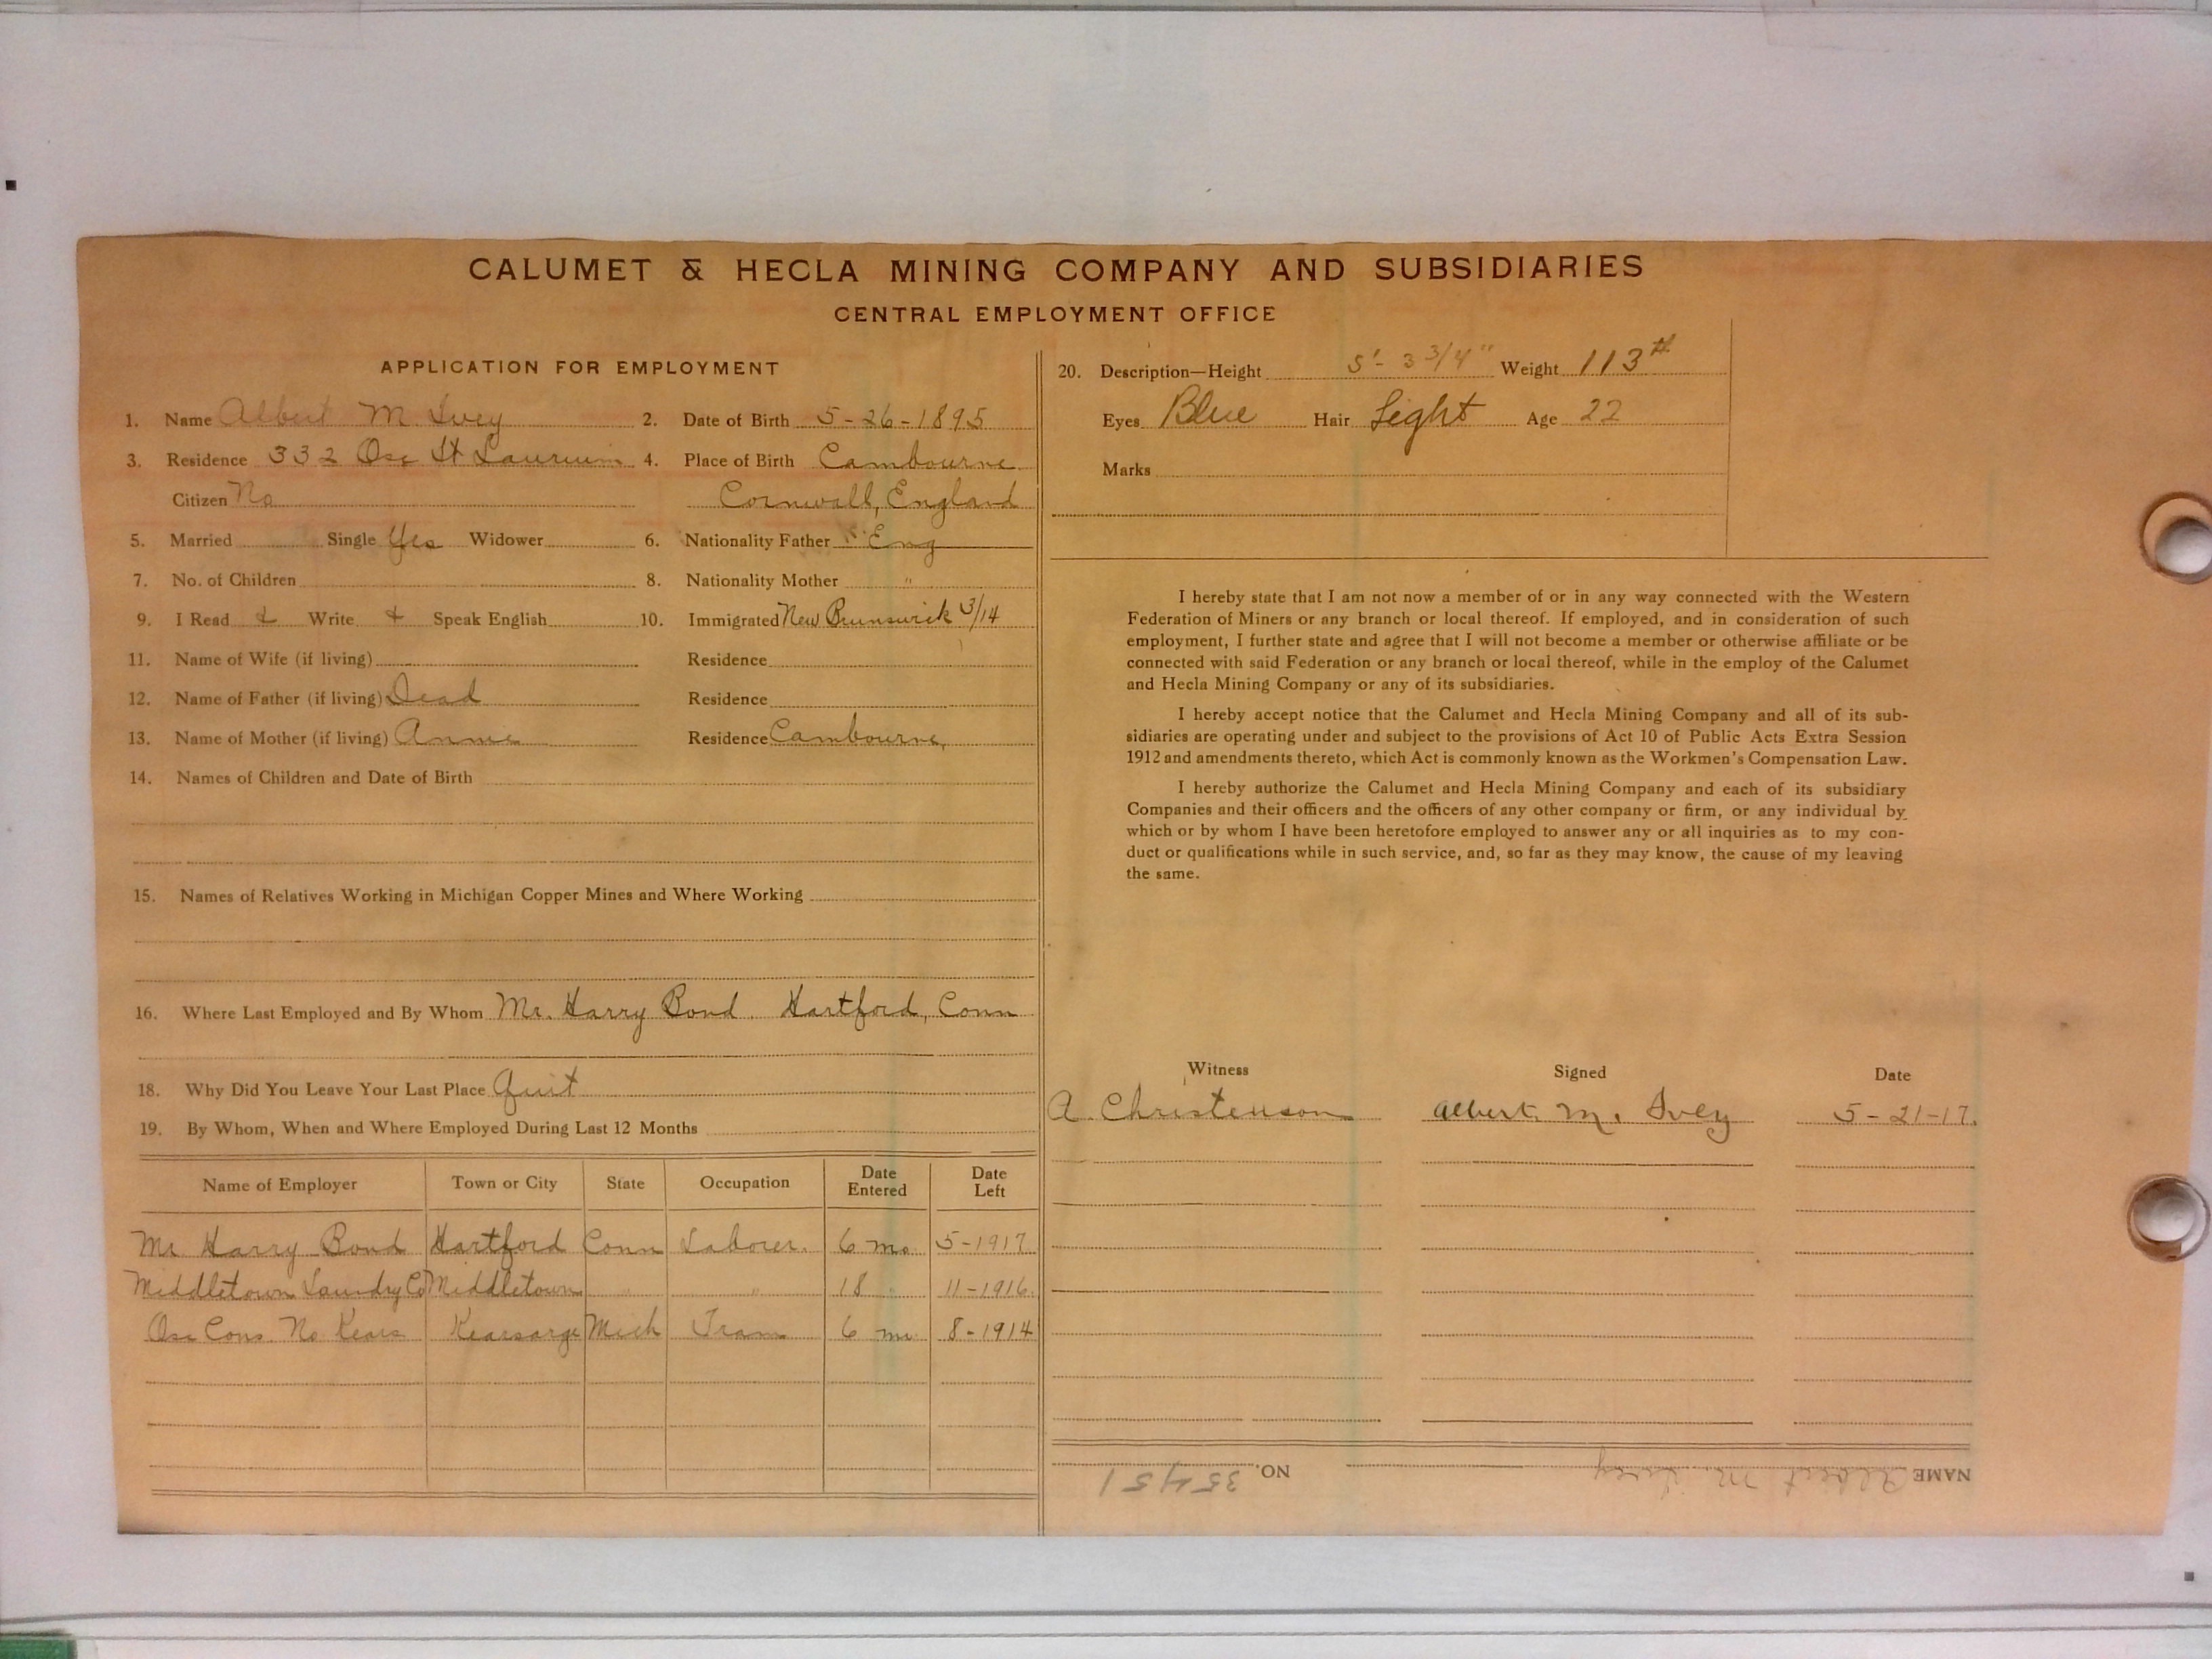 CALUMET & HECLA MINING COMPANY AND SUBSIDIARIES
CENTRAL EMPLOYMENT OFFICE
APPLICATION FOR EMPLOYMENT
1. Name Albert M. Ivey 2. Date of Birth 5-26-1895
3. Residence 332 Osc St Laurium 4. Place of Birth Cambourne
Citizen No Cornwall, England
5. Married Single Yes Widower 6. Nationality Father Eng
7. No. of Children 8. Nationality Mother "
9. I Read & Write & Speak English 10. Immigrated New Brunswick 3/14
11. Name of Wife (if living) Residence
12. Name of Father (if living) Dead Residence
13. Name of Mother (if living) Annie Residence Cambourne,
14. Names of Children and Date of Birth
15. Names of Relatives Working in Michigan Copper Mines and Where Working
16. Where Last Employed and By Whom Mr. Harry Bond. Hartford, Conn
18. Why Did You Leave Your Last Place Quit
19. By Whom, When and Where Employed During Last 12 Months
Name of Employer Town or City State Occupation Date Entered Date Left
Mr. Harry Bond Hartford Conn Laborer. 6 mo 5-1917
Middletown Laundry Co Middletown " " 18 " 11-1916
Osc Cons No Kears Kearsarge Mich Tram 6 mo 8-1914
20. Description—Height 5'- 3 3/4" Weight 113#
Eyes Blue Hair Light Age 22
Marks
I hereby state that I am not now a member of or in any way connected with the Western
Federation of Miners or any branch or local thereof. If employed, and in consideration of such
employment, I further state and agree that I will not become a member or otherwise affiliate or be
connected with said Federation or any branch or local thereof, while in the employ of the Calumet
and Hecla Mining Company or any of its subsidiaries.
I hereby accept notice that the Calumet and Hecla Mining Company and all of its sub-
sidiaries are operating under and subject to the provisions of Act 10 of Public Acts Extra Session
1912 and amendments thereto, which Act is commonly known as the Workmen's Compensation Law.
I hereby authorize the Calumet and Hecla Mining Company and each of its subsidiary
Companies and their officers and the officers of any other company or firm, or any individual by
which or by whom I have been heretofore employed to answer any or all inquiries as to my con-
duct or qualifications while in such service, and, so far as they may know, the cause of my leaving
the same.
Witness Signed Date
A. Christenson Albert. M. Ivey 5-21-17.
NAME Albert M. Ivey NO. 35451